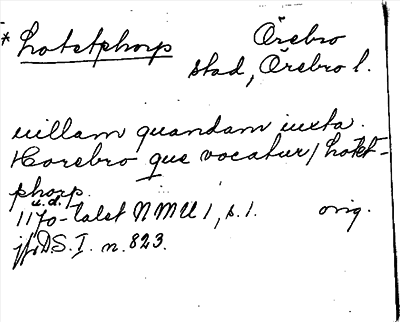 * Lotetphorp Örebro
stad, Örebro l.
uillam quandam iuxta
Horebro que vocatur / Lotet-
phorp.
u.d.
1170-talet NMU 1, s. 1. orig.
jfr DS. I. n. 823.